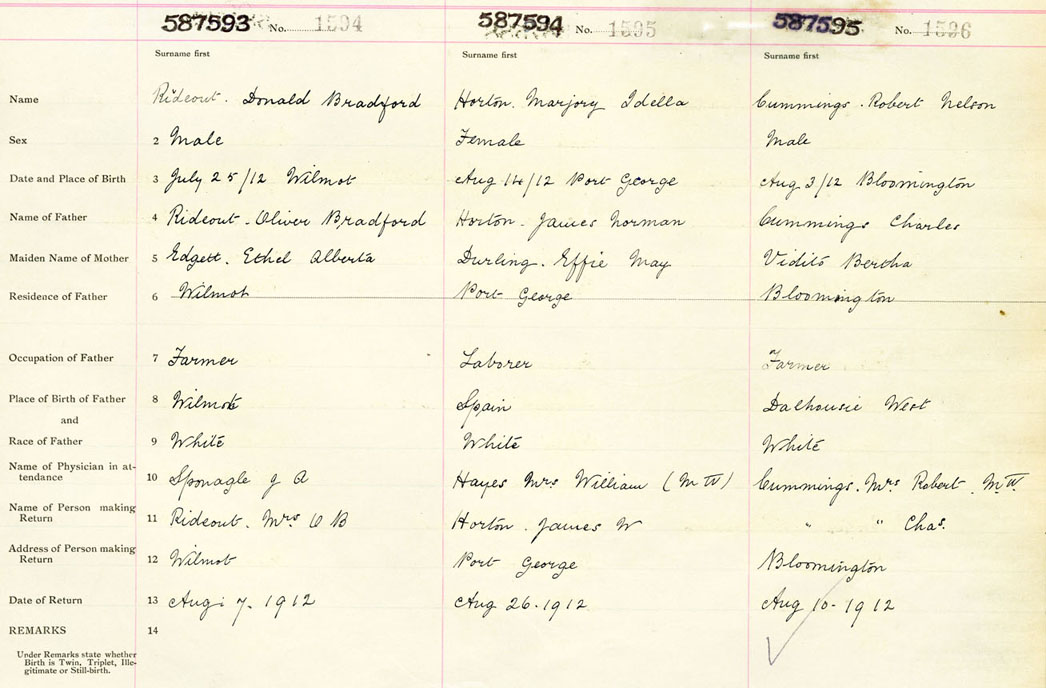 587593 No. 1594 587594 No. 1595 587595 No. 1596
Surname first Surname first Surname first
Name Rideout. Donald Bradford Horton. Marjory Idella Cummings. Robert Nelson
Sex 2 Male Female Male
Date and Place of Birth 3 July 25/12 Wilmot Aug 14/12 Port George Aug 3/12 Bloomington
Name of Father 4 Rideout - Oliver Bradford Horton. James Norman Cummings Charles
Maiden Name of Mother 5 Edgett. Ethel Alberta Durling. Effie May Vidito Bertha
Residence of Father 6 Wilmot Port George Bloomington
Occupation of Father 7 Farmer Laborer Farmer
Place of Birth of Father 8 Wilmot Spain Dalhousie West
and
Race of Father 9 White White White
Name of Physician in at-
tendance 10 Sponagle J A Hayes Mrs William (M W) Cummings. Mrs Robert M.W.
Name of Person making
Return 11 Rideout. Mrs O B Horton. James N " " Chas.
Address of Person making
Return 12 Wilmot Port George Bloomington
Date of Return 13 Aug 7. 1912 Aug 26-1912 Aug 10-1912
REMARKS 14
Under Remarks state whether
Birth is Twin, Triplet, Ille-
gitimate or Still-birth.